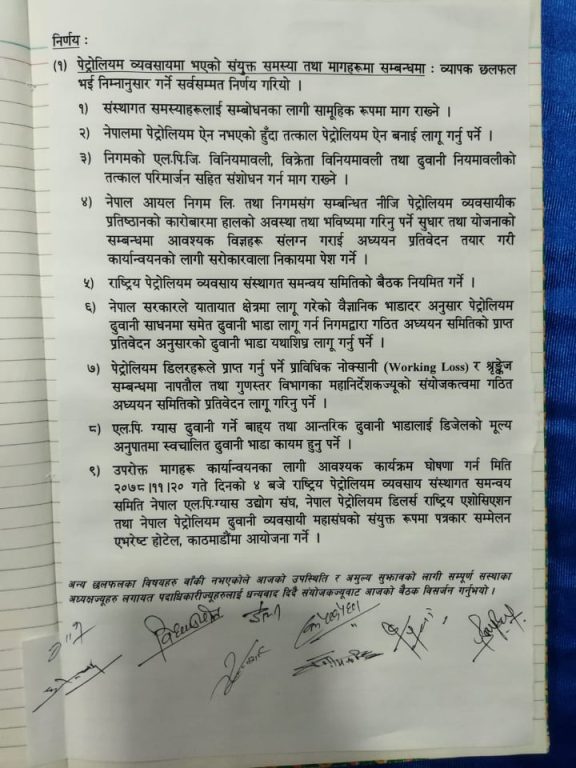 निर्णय :
(१) पेट्रोलियम व्यवसायमा भएको संयुक्त समस्या तथा मागहरूमा सम्बन्धमा : व्यापक छलफल
भई निम्नानुसार गर्ने सर्वसम्मत निर्णय गरियो ।
१) संस्थागत समस्याहरूलाई सम्बोधनका लागी सामूहिक रूपमा माग राख्ने ।
२) नेपालमा पेट्रोलियम ऐन नभएको हुँदा तत्काल पेट्रोलियम ऐन बनाई लागू गर्नु पर्ने ।
३) निगमको एल.पि.जि. विनियमावली, विक्रेता विनियमावली तथा दुवानी नियमावलीको
तत्काल परिमार्जन सहित संशोधन गर्न माग राख्ने ।
४) नेपाल आयल निगम लि. तथा निगमसंग सम्बन्धित नीजि पेट्रोलियम व्यवसायीक
प्रतिष्ठानको कारोबारमा हालको अवस्था तथा भविष्यमा गरिनु पर्ने सुधार तथा योजनाको
सम्बन्धमा आवश्यक विज्ञहरू संलग्न गराई अध्ययन प्रतिवेदन तयार गरी
कार्यान्वयनको लागी सरोकारवाला निकायमा पेश गर्ने ।
५) राष्ट्रिय पेट्रोलियम व्यवसाय संस्थागत समन्वय समितिको बैठक नियमित गर्ने ।
६) नेपाल सरकारले यातायात क्षेत्रमा लागू गरेको वैज्ञानिक भाडादर अनुसार पेट्रोलियम
दुवानी साधनमा समेत दुवानी भाडा लागू गर्न निगमद्वारा गठित अध्ययन समितिको प्राप्त
प्रतिवेदन अनुसारको दुवानी भाडा यथाशिघ्र लागू गर्नु पर्ने ।
७) पेट्रोलियम डिलरहरूले प्राप्त गर्नु पर्ने प्राविधिक नोक्सानी (Working Loss) र श्रृङ्केज
सम्बन्धमा नापतौल तथा गुणस्तर विभागका महानिर्देशकज्यूको संयोजकत्वमा गठित
अध्ययन समितिको प्रतिवेदन लागू गरिनु पर्ने ।
८) एल.पि. ग्यास दुवानी गर्ने बाह्य तथा आन्तरिक दुवानी भाडालाई डिजेलको मूल्य
अनुपातमा स्वचालित दुवानी भाडा कायम हुनु पर्ने ।
९) उपरोक्त मागहरू कार्यान्वयनका लागी आवश्यक कार्यक्रम घोषणा गर्न मिति
२०७८।११।२० गते दिनको ४ बजे राष्ट्रिय पेट्रोलियम व्यवसाय संस्थागत समन्वय
समिति नेपाल एल.पि.ग्यास उद्योग संघ, नेपाल पेट्रोलियम डिलर्स राष्ट्रिय एशोसिएशन
तथा नेपाल पेट्रोलियम दुवानी व्यवसायी महासंघको संयुक्त रूपमा पत्रकार सम्मेलन
एभरेष्ट होटेल, काठमाडौंमा आयोजना गर्ने ।
अन्य छलफलका विषयहरु बाँकी नभएकोले आजको उपस्थिति र अमुल्य सुझावको लागी सम्पूर्ण सस्थाका
अध्यक्षज्यूहरु लगायत पदाधिकारीज्यूहरुलाई धन्यवाद दिदै संयोजकज्यूबाट आजको बैठक विसर्जन गर्नुभयो ।